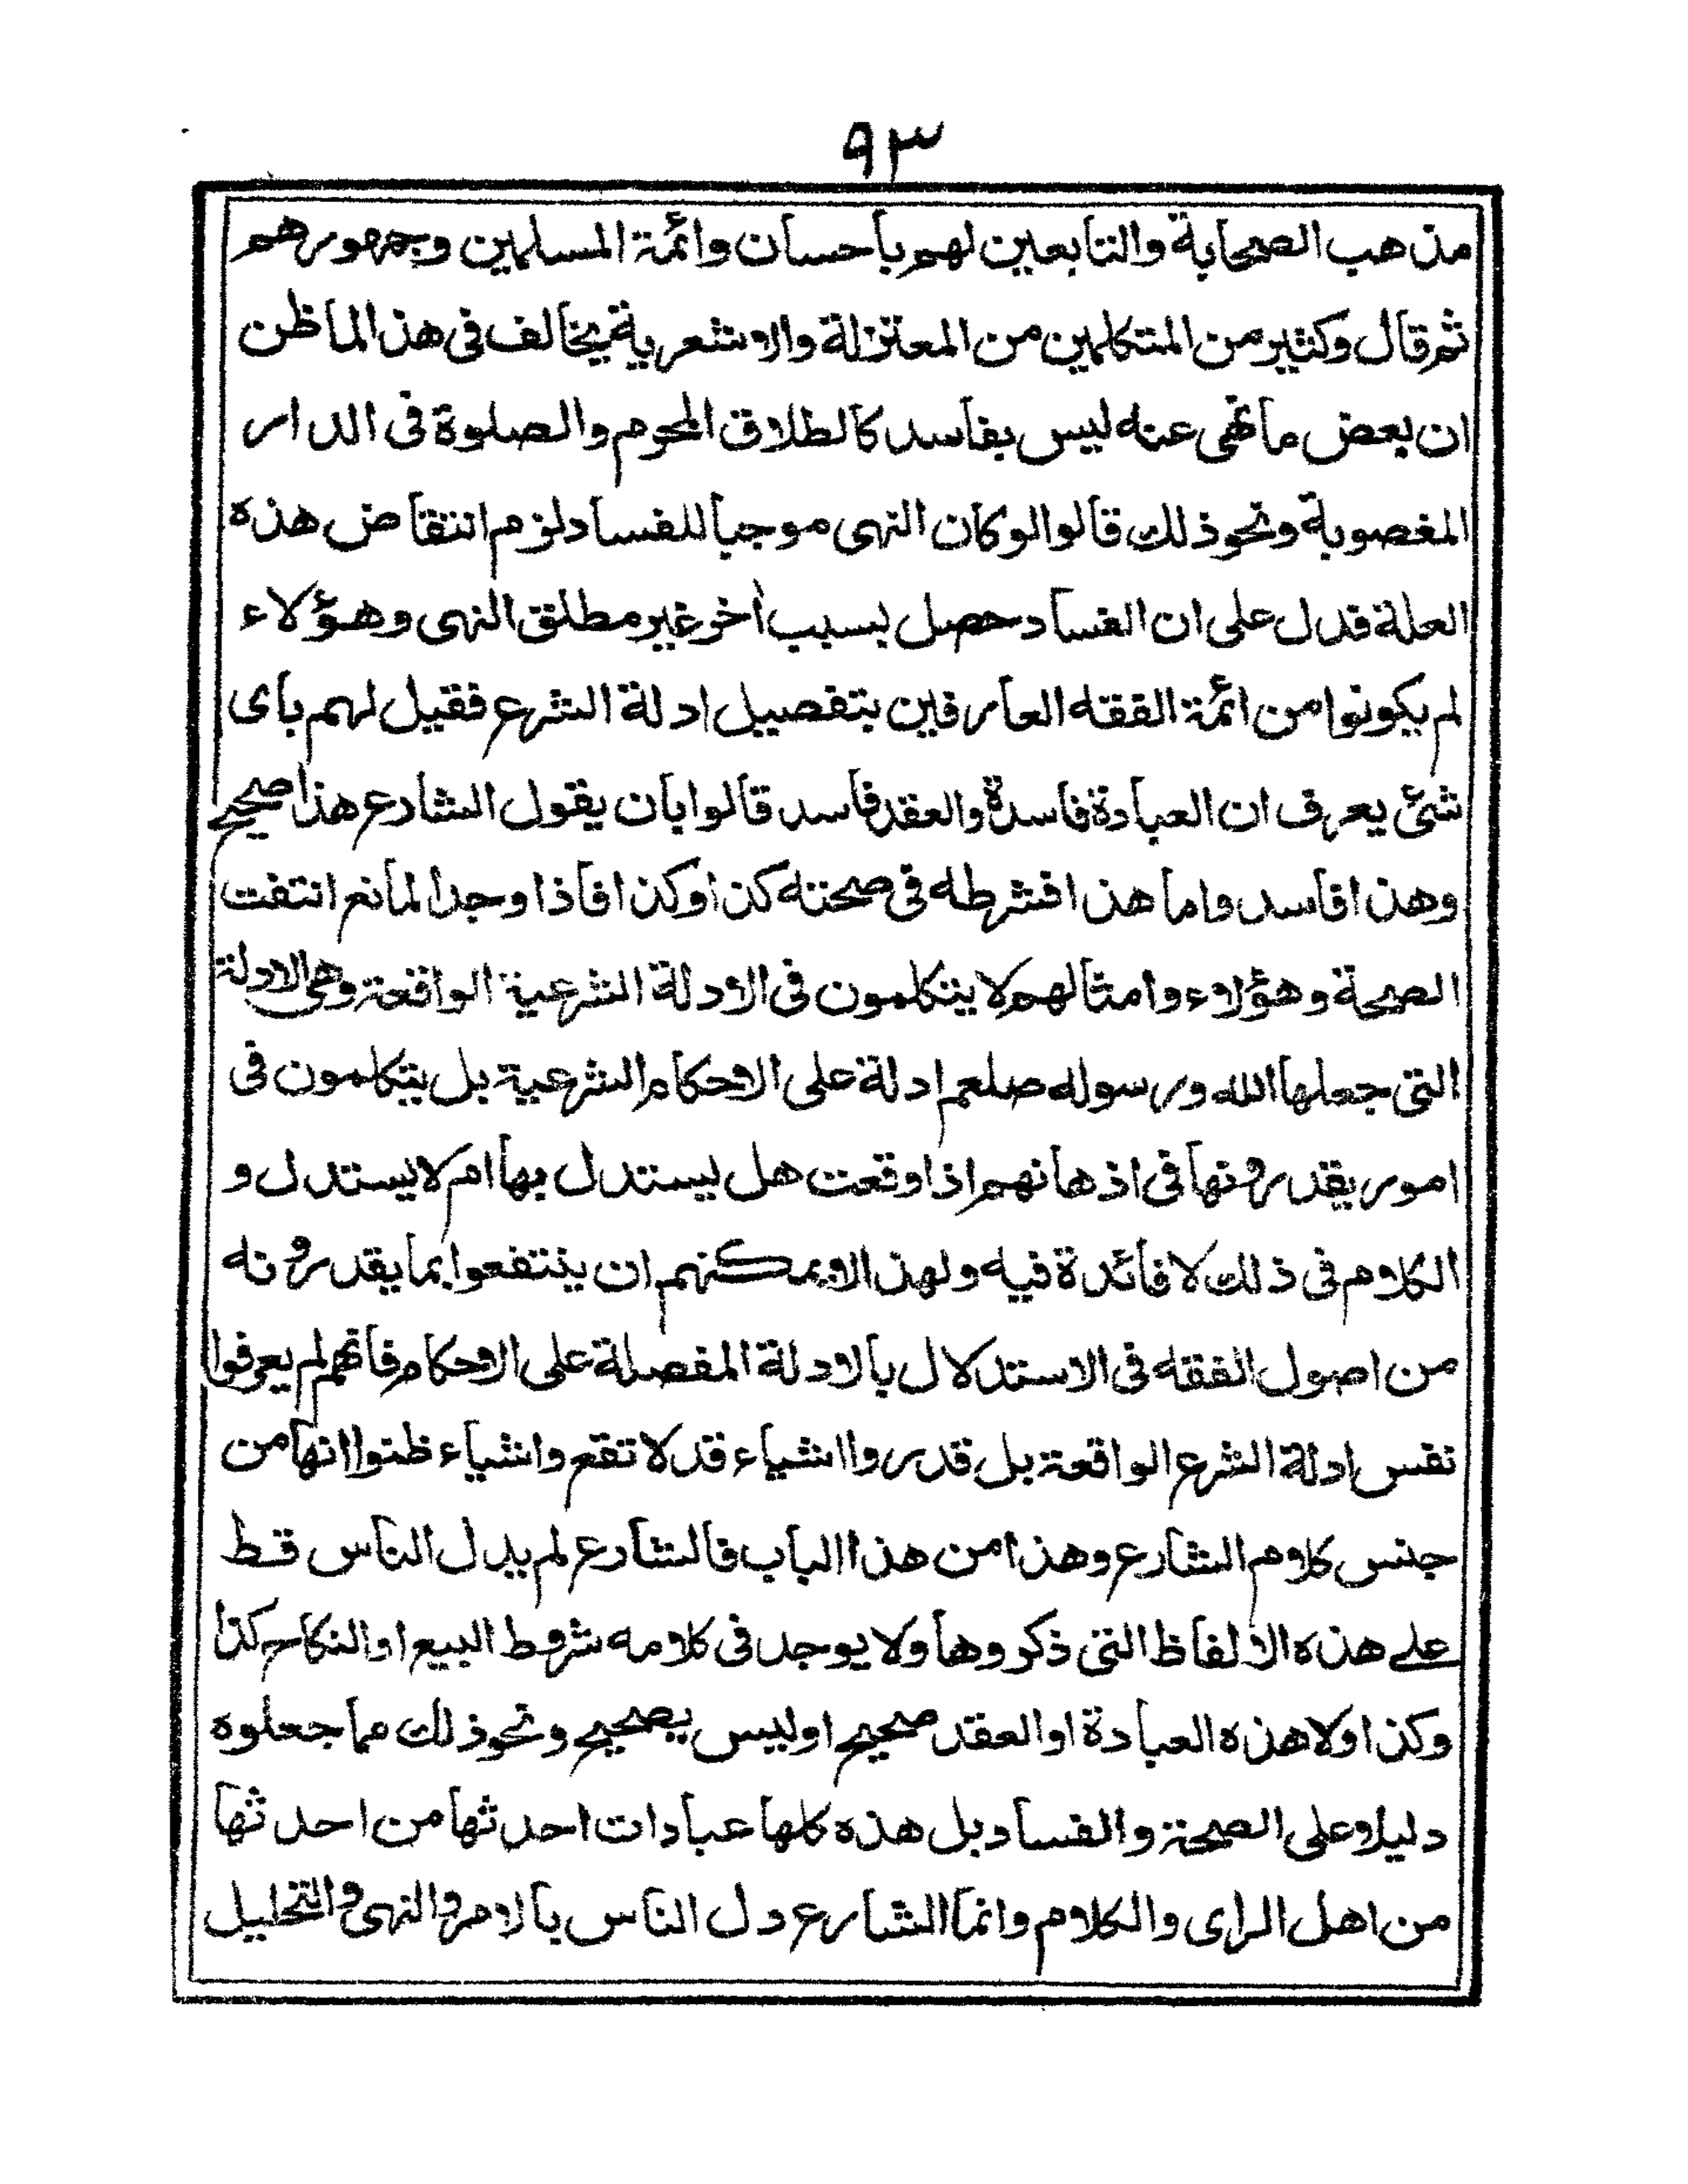 ٩٣
مذهب الصحابة والتابعين لهم باحسان وائمة المسلمين وجمهورهم
ثم قال وكثير من المتكلمين من المعتزلة والاشعرية يخالف فى هذا لما ظن
ان بعض ما نهى عنه ليس بفاسد كالطلاق المحرم والصلوة فى الدار
المغصوبة ونحو ذلك قالوا لو كان النهى موجبا للفساد لزم انتقاض هذه
العلة فدل على ان الفساد حصل بسبب أخر غير مطلق النهى وهؤلاء
لم يكونوا من ائمة الفقه العارفين بتفصيل ادلة الشرع فقيل لهم باى
شئ يعرف ان العبادة فاسدة والعقد فاسد قالوا بان يقول الشارع هذا صحيح
وهذا فاسد واما هذا فشرطه فى صحته كذا وكذا فاذا وجد المانع انتفت
الصحة وهؤلاء وامثالهم لا يتكلمون فى الادلة الشرعية الواقعة وهى الادلة
التى جعلها الله ورسوله صلعم ادلة على الاحكام الشرعية بل يتكلمون فى
امور يقدرونها فى اذهانهم اذا وقعت هل يستدل بها ام لا يستدل و
الكلام فى ذلك لا فائدة فيه ولهذا لا يمكنهم ان ينتفعوا بما يقدرونه
من اصول الفقه فى الاستدلال بالادلة المفصلة على الاحكام فانهم لم يعرفوا
نفس ادلة الشرع الواقعة بل قدروا اشياء قد لا تقع واشياء ظنوا انها من
جنس كلام الشارع وهذا من هذا الباب فالشارع لم يدل الناس قط
على هذه الالفاظ التى ذكروها ولا يوجد فى كلامه شروط البيع او النكاح كذا
وكذا ولا هذه العبادة او العقد صحيح او ليس بصحيح ونحو ذلك مما جعلوه
دليلا على الصحة والفساد بل هذه كلها عبادات احدثها من احدثها
من اهل الراى والكلام وانما الشارع دل الناس بالامر والنهى والتحليل